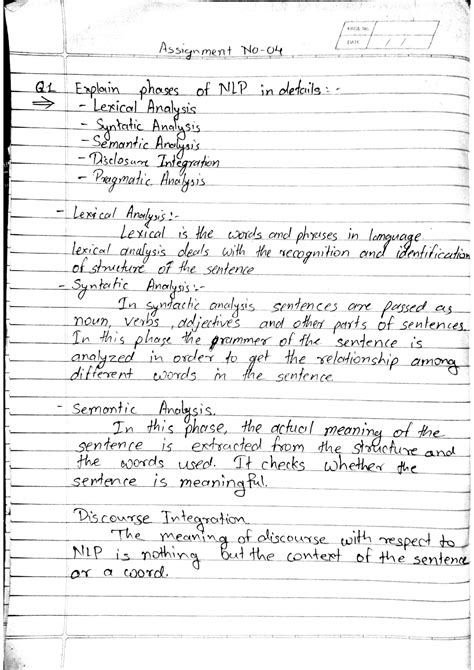 PAGE NO.
DATE / /
Assignment No-04
Q1 Explain phases of NLP in details:-
- Lexical Analysis
- Syntatic Analysis
- Semantic Analysis
- Disclosure Integration
- Pragmatic Analysis
- Lexical Analysis:-
Lexical is the words and phrases in language
lexical analysis deals with the recognition and identification
of structure of the sentence
- Syntatic Analysis:-
In syntactic analysis sentences are passed as
noun, verbs, adjectives and other parts of sentences.
In this phase the grammer of the sentence is
analyzed in order to get the relationship among
different words in the sentence
- Semantic Analysis.
In this phase, the actual meaning of the
sentence is extracted from the structure and
the words used. It checks whether the
sentence is meaningful.
Discourse Integration
The meaning of discourse with respect to
NLP is nothing but the context of the sentence
or a word.